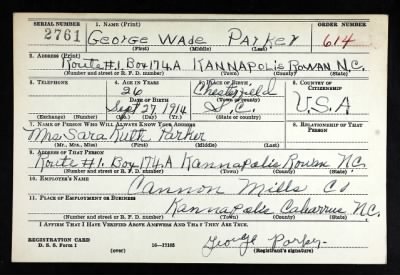 SERIAL NUMBER 1. NAME (Print) ORDER NUMBER
2761 George Wade Parker 614
(First) (Middle) (Last)
2. ADDRESS (Print)
Route #1. Box 174A Kannapolis Rowan N.C.
(Number and street or R. F. D. number) (Town) (County) (State)
3. TELEPHONE 4. AGE IN YEARS 5. PLACE OF BIRTH 6. COUNTRY OF CITIZENSHIP
26 Chesterfield
DATE OF BIRTH (Town or county)
Sept 27 1914 S.C. U.S.A
(Exchange) (Number) (Mo.) (Day) (Yr.) (State or country)
7. NAME OF PERSON WHO WILL ALWAYS KNOW YOUR ADDRESS 8. RELATIONSHIP OF THAT PERSON
Mrs Sara Ruth Parker
(Mr., Mrs., Miss) (First) (Middle) (Last)
9. ADDRESS OF THAT PERSON
Route #1. Box 174.A Kannapolis Rowan N.C.
(Number and street or R. F. D. number) (Town) (County) (State)
10. EMPLOYER'S NAME
Cannon Mills Co
11. PLACE OF EMPLOYMENT OR BUSINESS
Kannapolis Cabarrus N.C.
(Number and street or R. F. D. number) (Town) (County) (State)
I AFFIRM THAT I HAVE VERIFIED ABOVE ANSWERS AND THAT THEY ARE TRUE.
REGISTRATION CARD George Parker
D. S. S. Form 1 (over) 16—17105 (Registrant's signature)